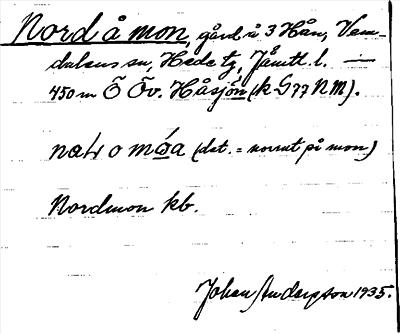 Nord å mon, gård å 3 Hån, Vem-
dalens sn, Hede tg, Jämtl. l. —
450 m Ö Öv. Håsjön (k G 77 NM).
(dat. = norrut på mon)
Nordmon kb.
Johan Anderson 1935.